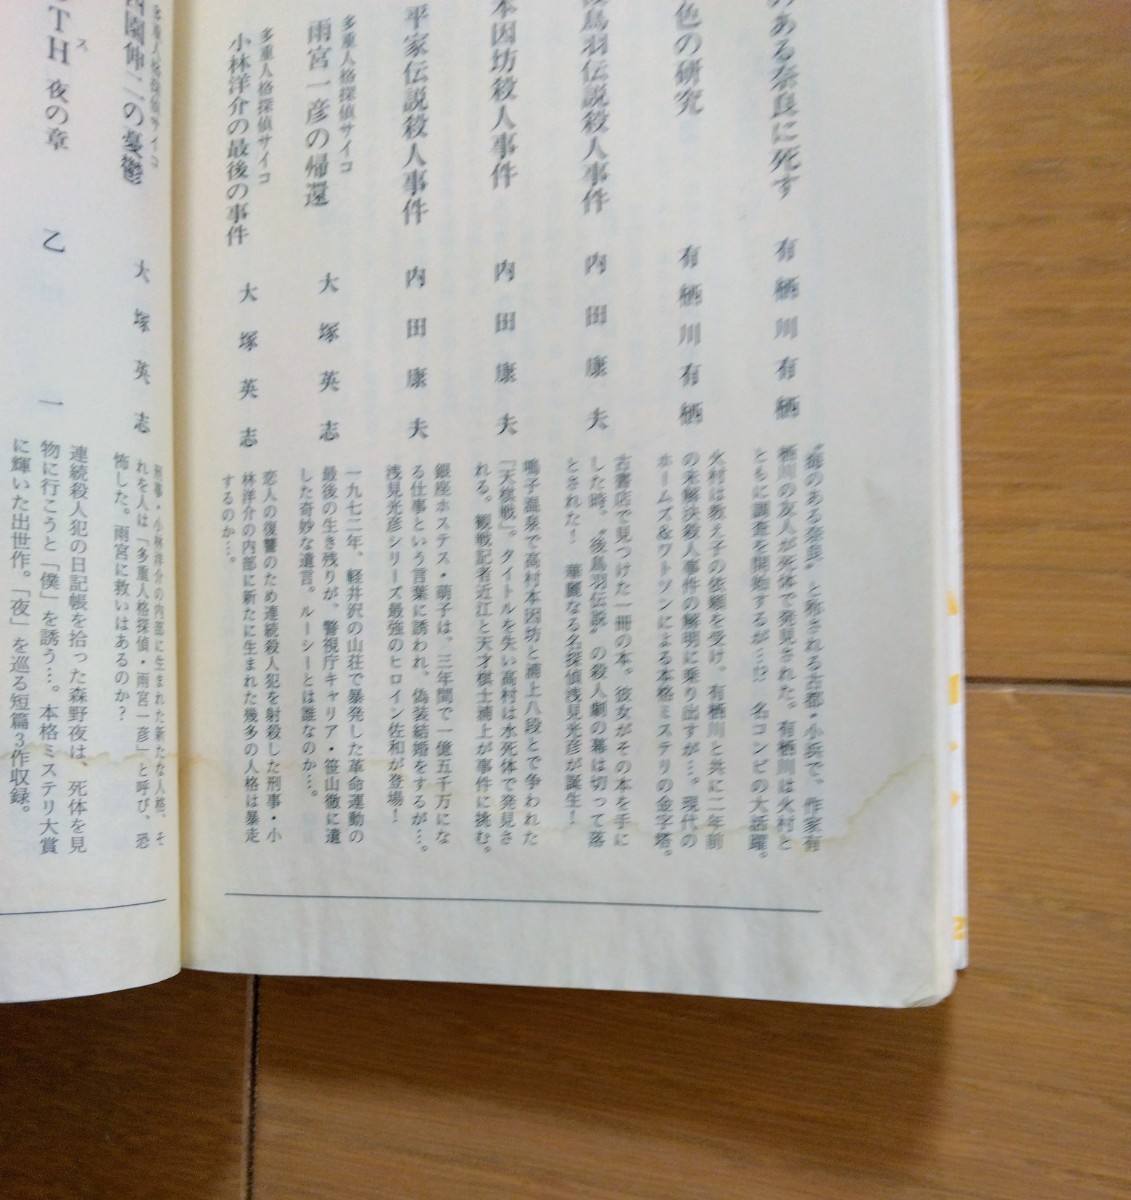 のある奈良に死す
有栖川有栖
“海のある奈良”と称される古都・小浜で、作家有
栖川の友人が死体で発見された。有栖川は火村と
ともに調査を開始するが…!? 名コンビの大活躍。
色の研究
有栖川有栖
火村は教え子の依頼を受け、有栖川と共に二年前
の未解決殺人事件の解明に乗り出すが…。現代の
ホームズ&ワトソンによる本格ミステリの金字塔。
鳥羽伝説殺人事件
内田康夫
古書店で見つけた一冊の本。彼女がその本を手に
した時、“後鳥羽伝説”の殺人劇の幕は切って落
とされた! 華麗なる名探偵浅見光彦が誕生!
本因坊殺人事件
内田康夫
鳴子温泉で高村本因坊と浦上八段とで争われた
「天棋戦」。タイトルを失い高村は水死体で発見さ
れる。観戦記者近江と天才棋士浦上が事件に挑む。
平家伝説殺人事件
内田康夫
銀座ホステス・萌子は、三年間で一億五千万にな
る仕事という言葉に誘われ、偽装結婚をするが…。
浅見光彦シリーズ最強のヒロイン佐和が登場!
多重人格探偵サイコ
雨宮一彦の帰還
大塚英志
一九七二年、軽井沢の山荘で暴発した革命運動の
最後の生き残りが、警視庁キャリア・笹山徹に遺
した奇妙な遺言。ルーシーとは誰なのか…。
多重人格探偵サイコ
小林洋介の最後の事件
大塚英志
恋人の復讐のため連続殺人犯を射殺した刑事・小
林洋介の内部に新たに生まれた幾多の人格は暴走
するのか…。
重人格探偵サイコ
園伸二の憂鬱
大塚英志
刑事・小林洋介の内部に生まれた新たな人格。そ
れを人は「多重人格探偵・雨宮一彦」と呼び、恐
怖した。雨宮に救いはあるのか?
TH
ス
夜の章
乙一
連続殺人犯の日記帳を拾った森野夜は、死体を見
物に行こうと「僕」を誘う…。本格ミステリ大賞
に輝いた出世作。「夜」を巡る短篇3作収録。